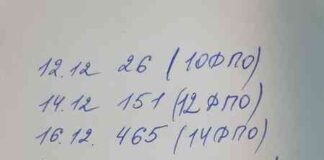 12.12 26 (10ФПО)
14.12 151 (12ФПО)
16.12. 465 (14ФПО)